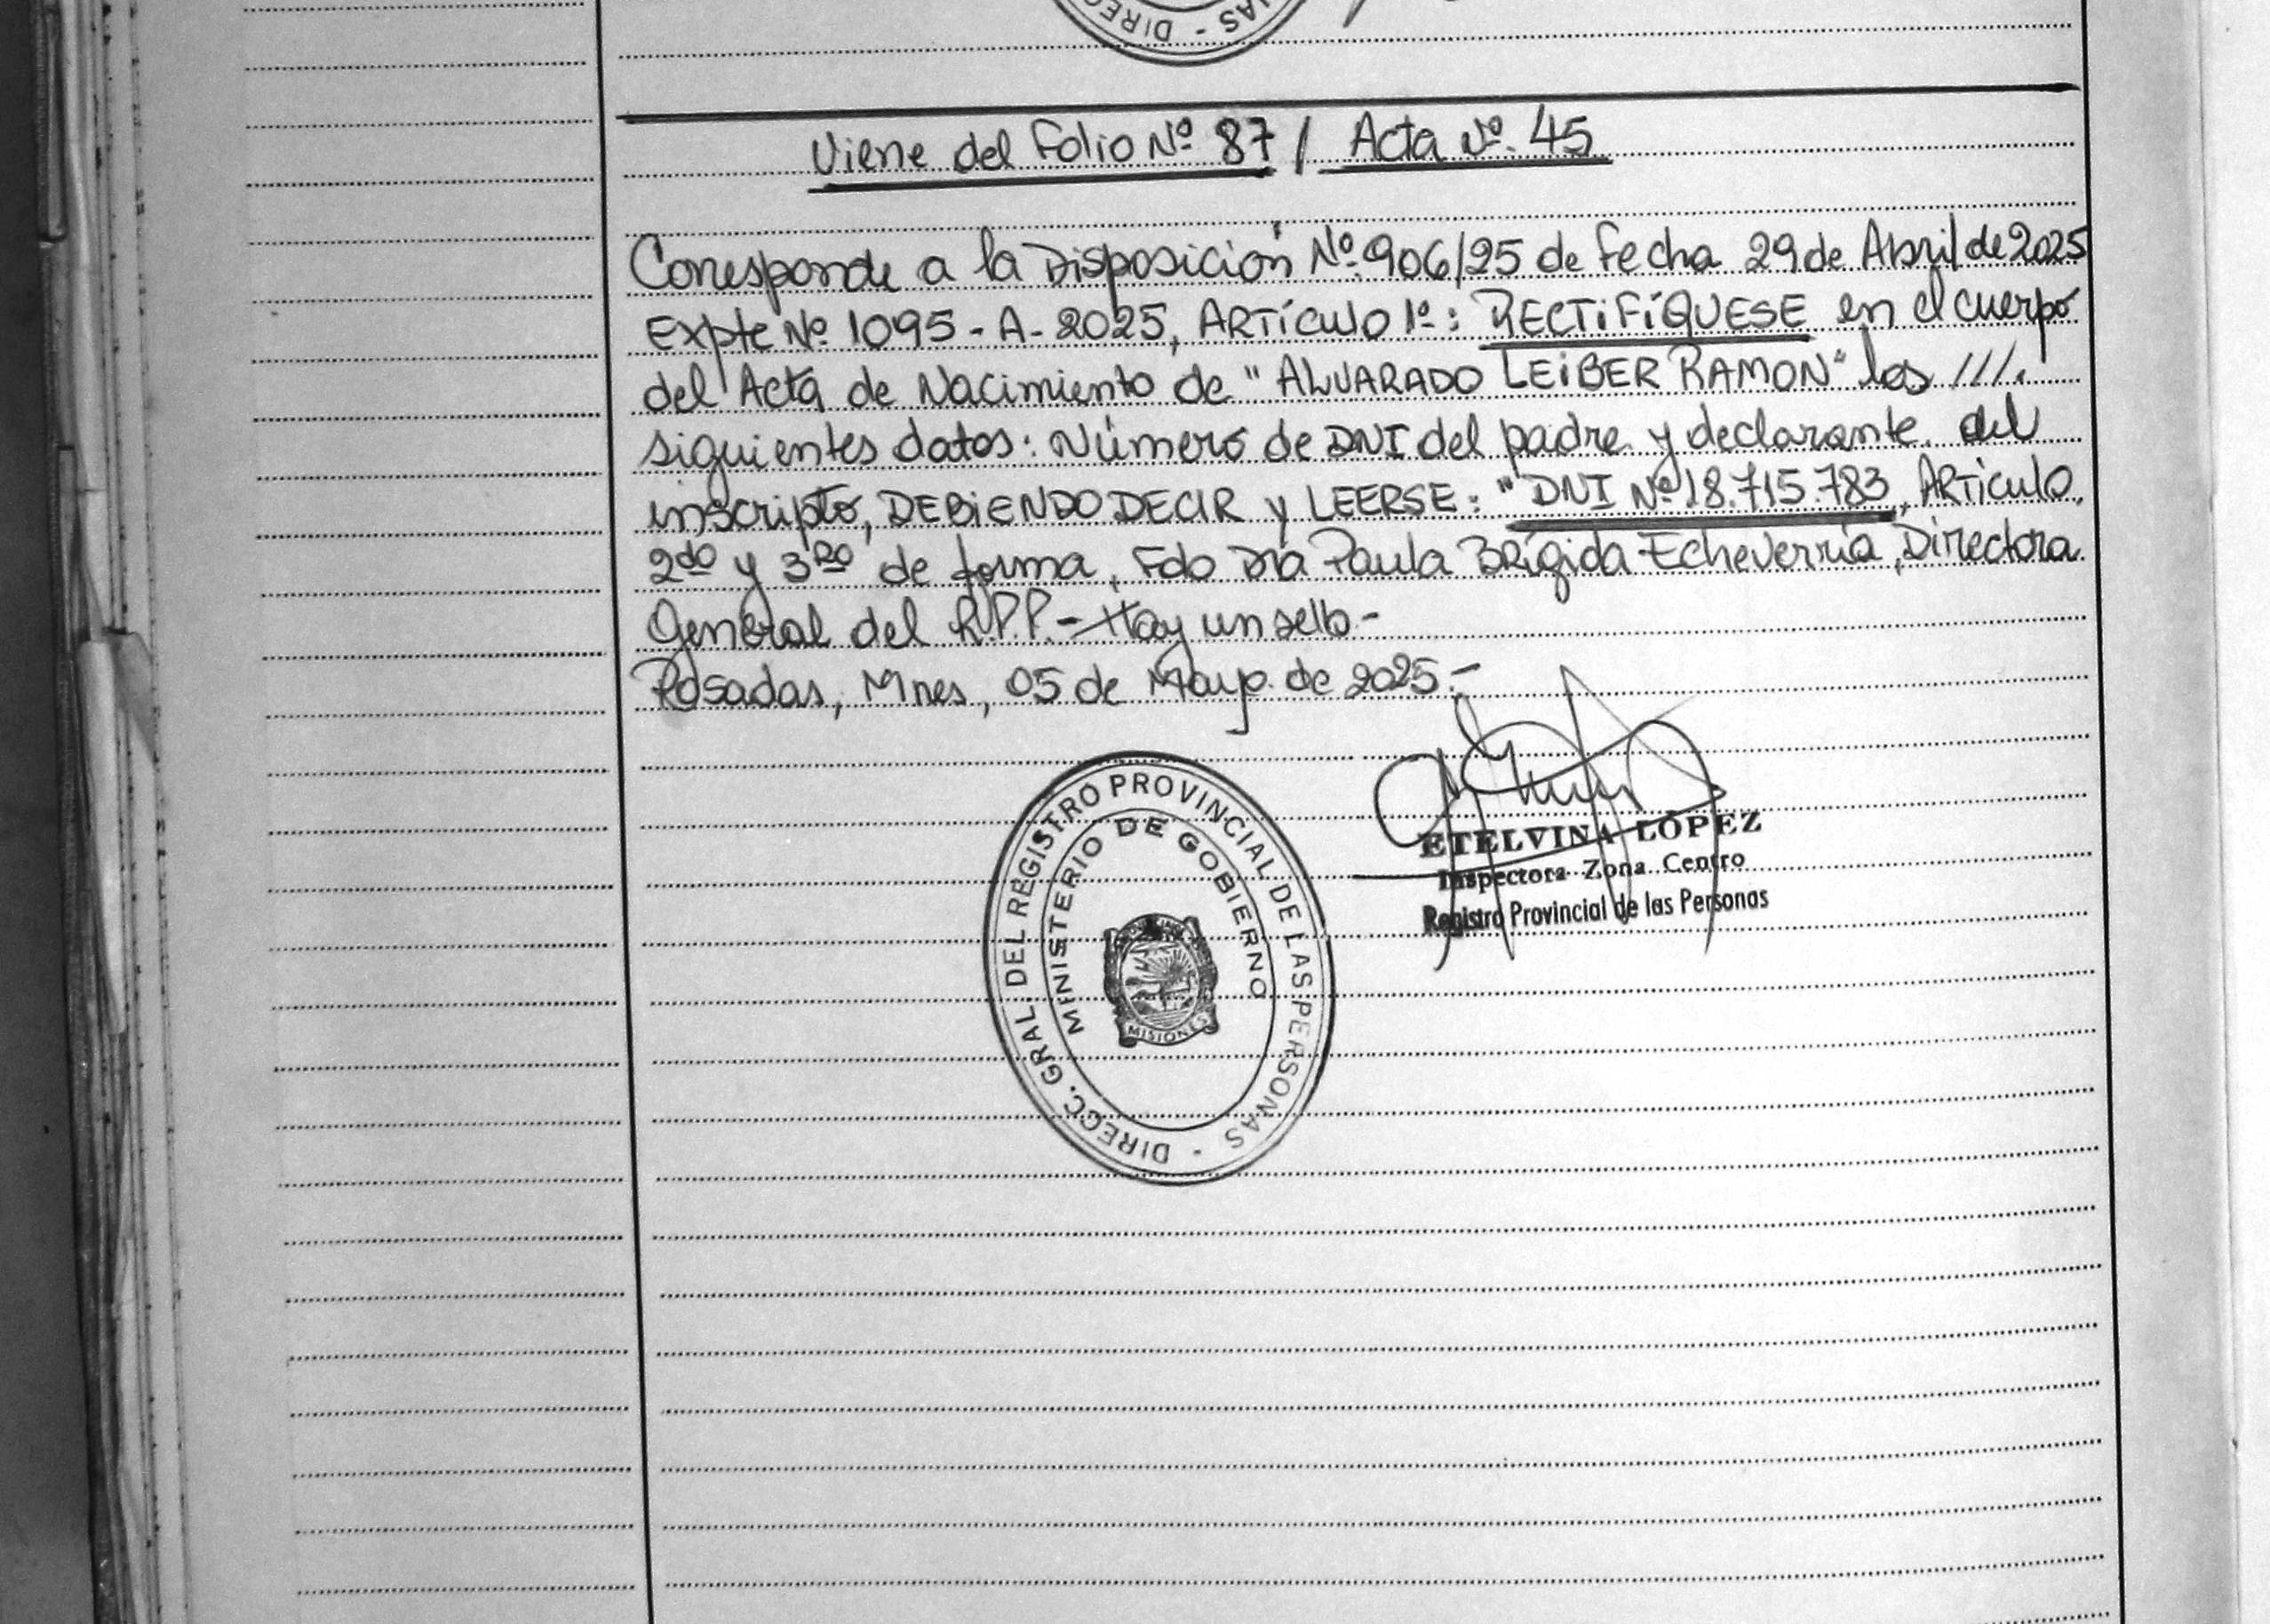 DIRECC
NAS -
Viene del Folio Nº 87 / Acta Nº. 45
Corresponde a la Disposición Nº 906/25 de fecha 29 de Abril de 2025
Expte Nº 1095-A-2025, ARTÍCULO 1º: RECTIFÍQUESE en el cuerpo
del Acta de Nacimiento de "ALVARADO LEIBER RAMON" los ///.
siguientes datos: Número de DNI del padre y declarante del
inscripto, DEBIENDO DECIR y LEERSE: "DNI Nº 18.715.783, ARTICULO
2do y 3RO de forma, Fdo Dra Paula Brígida Echeverría, Directora
General del R.P.P.- Hay un sello-
Posadas, Mnes, 05 de Mayo de 2025.-
DIRECC. GRAL. DEL REGISTRO PROVINCIAL DE LAS PERSONAS -
MINISTERIO DE GOBIERNO
MISIONES
ETELVINA LOPEZ
Inspectora Zona Centro
Registro Provincial de las Personas